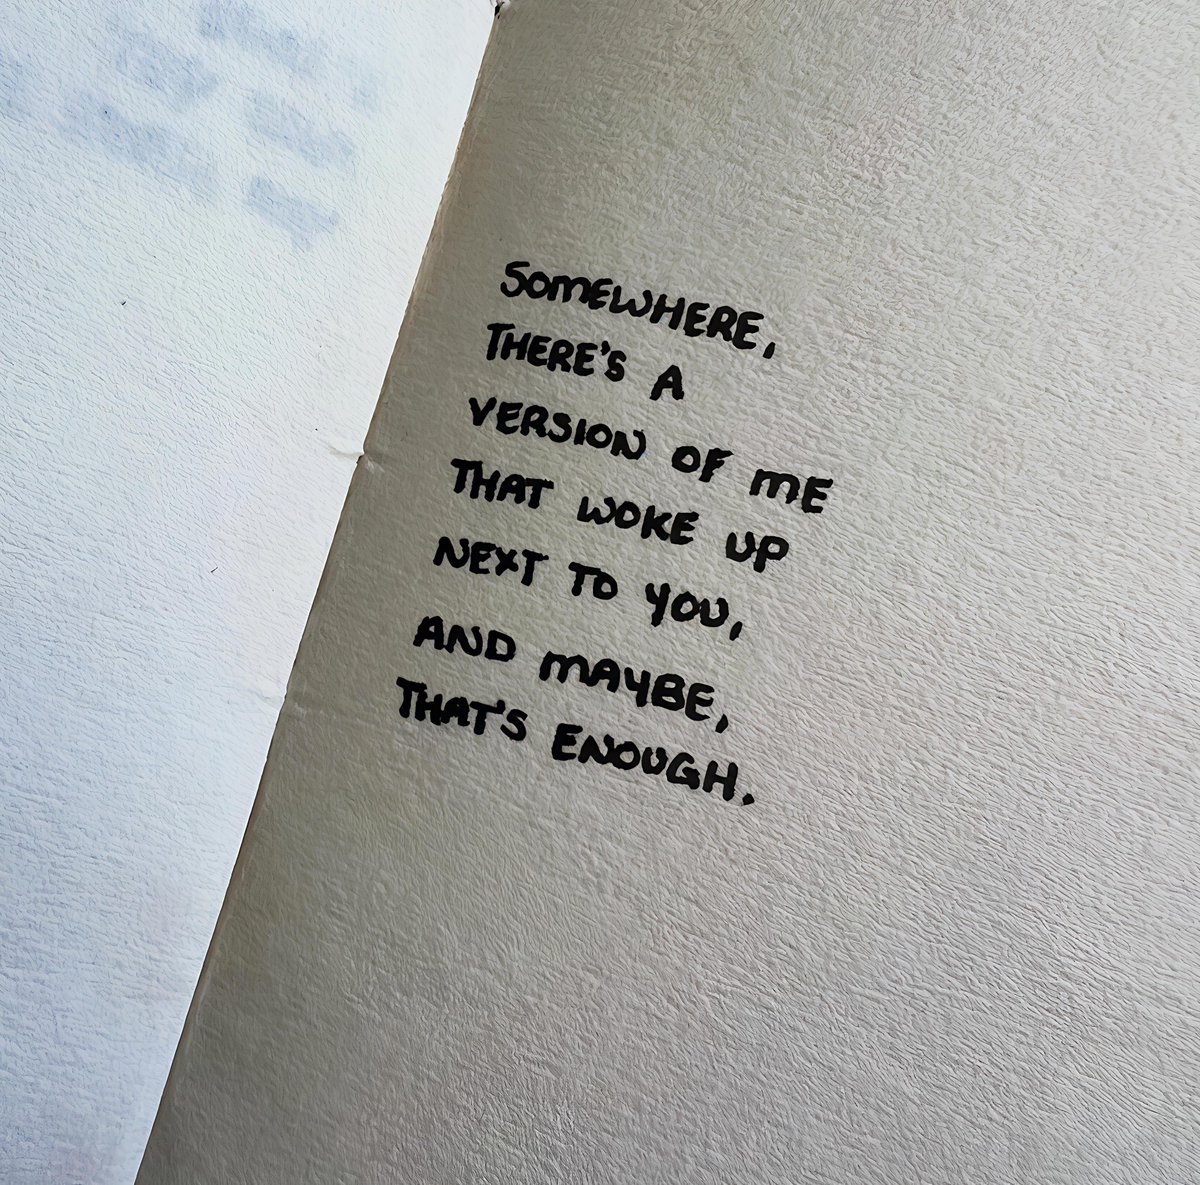 SOMEWHERE,
THERE'S A
VERSION OF ME
THAT WOKE UP
NEXT TO YOU,
AND MAYBE,
THAT'S ENOUGH.